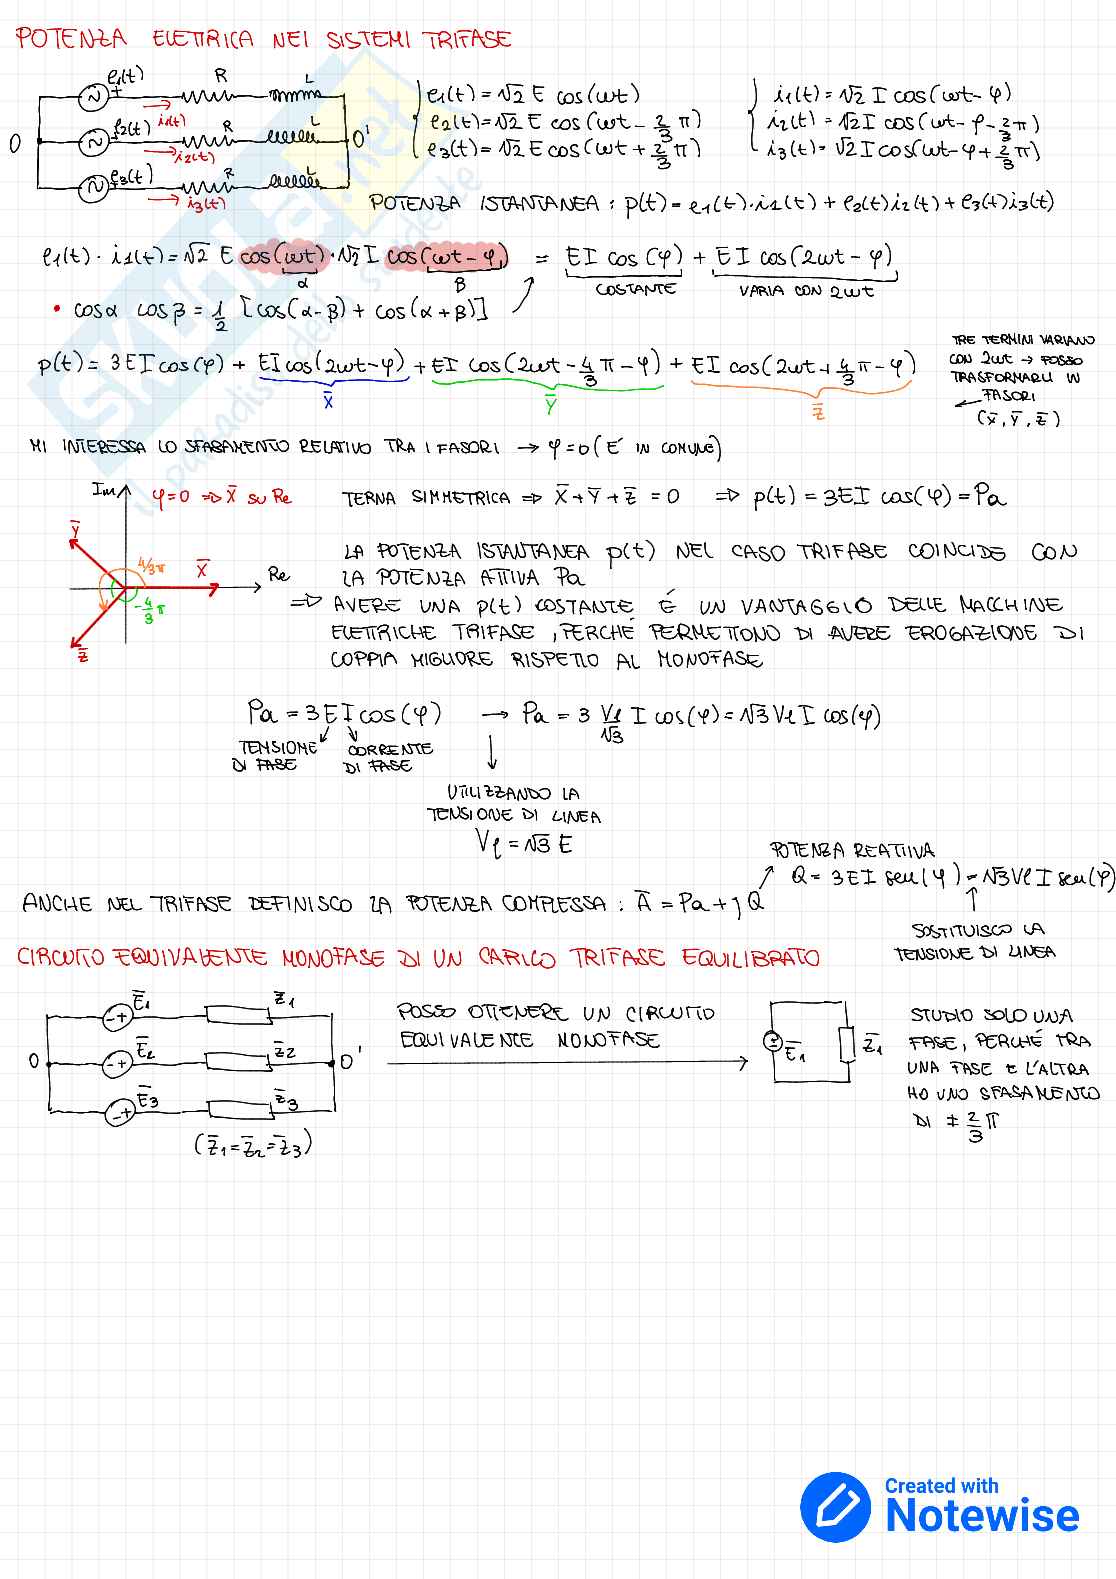 POTENZA ELETTRICA NEI SISTEMI TRIFASE
e1(t) R L
i1(t)
e2(t) R L
i2(t)
e3(t) R L
i3(t)
O O'
e1(t) = √2 E cos(ωt)
e2(t) = √2 E cos(ωt - 2/3 π)
e3(t) = √2 E cos(ωt + 2/3 π)
i1(t) = √2 I cos(ωt - φ)
i2(t) = √2 I cos(ωt - φ - 2/3 π)
i3(t) = √2 I cos(ωt - φ + 2/3 π)
POTENZA ISTANTANEA : p(t) = e1(t)·i1(t) + e2(t)i2(t) + e3(t)i3(t)
e1(t) · i1(t) = √2 E cos(ωt) · √2 I cos(ωt - φ) = EI cos(φ) + EI cos(2ωt - φ)
α β COSTANTE VARIA CON 2ωt
• cosα cosβ = 1/2 [cos(α-β) + cos(α+β)]
p(t) = 3EI cos(φ) + EI cos(2ωt-φ) + EI cos(2ωt - 4/3 π - φ) + EI cos(2ωt + 4/3 π - φ)
X̄ Ȳ Z̄
TRE TERMINI VARIANO
CON 2ωt → POSSO
TRASFORMARLI IN
FASORI
(X̄, Ȳ, Z̄)
MI INTERESSA LO SFASAMENTO RELATIVO TRA I FASORI → φ=0 (E' IN COMUNE)
Im φ=0 ⇒ X̄ su Re
Ȳ
4/3π X̄
Re
-4/3 π
Z̄
TERNA SIMMETRICA ⇒ X̄ + Ȳ + Z̄ = 0 ⇒ p(t) = 3EI cos(φ) = Pa
LA POTENZA ISTANTANEA p(t) NEL CASO TRIFASE COINCIDE CON
LA POTENZA ATTIVA Pa
⇒ AVERE UNA p(t) COSTANTE É UN VANTAGGIO DELLE MACCHINE
ELETTRICHE TRIFASE, PERCHÉ PERMETTONO DI AVERE EROGAZIONE DI
COPPIA MIGLIORE RISPETTO AL MONOFASE
Pa = 3EI cos(φ) → Pa = 3 Vl/√3 I cos(φ) = √3 Vl I cos(φ)
TENSIONE DI FASE
CORRENTE DI FASE
UTILIZZANDO LA
TENSIONE DI LINEA
Vl = √3 E
POTENZA REATTIVA
Q = 3EI sen(φ) = √3 Vl I sen(φ)
ANCHE NEL TRIFASE DEFINISCO LA POTENZA COMPLESSA : Ā = Pa + jQ
SOSTITUISCO LA
TENSIONE DI LINEA
CIRCUITO EQUIVALENTE MONOFASE DI UN CARICO TRIFASE EQUILIBRATO
Ē1 Z̄1
Ē2 Z̄2
O O'
Ē3 Z̄3
(Z̄1 = Z̄2 = Z̄3)
POSSO OTTENERE UN CIRCUITO
EQUIVALENTE MONOFASE
Ē1 Z̄1
STUDIO SOLO UNA
FASE, PERCHÉ TRA
UNA FASE E L'ALTRA
HO UNO SFASAMENTO
DI ∓ 2/3 π
Created with
Notewise